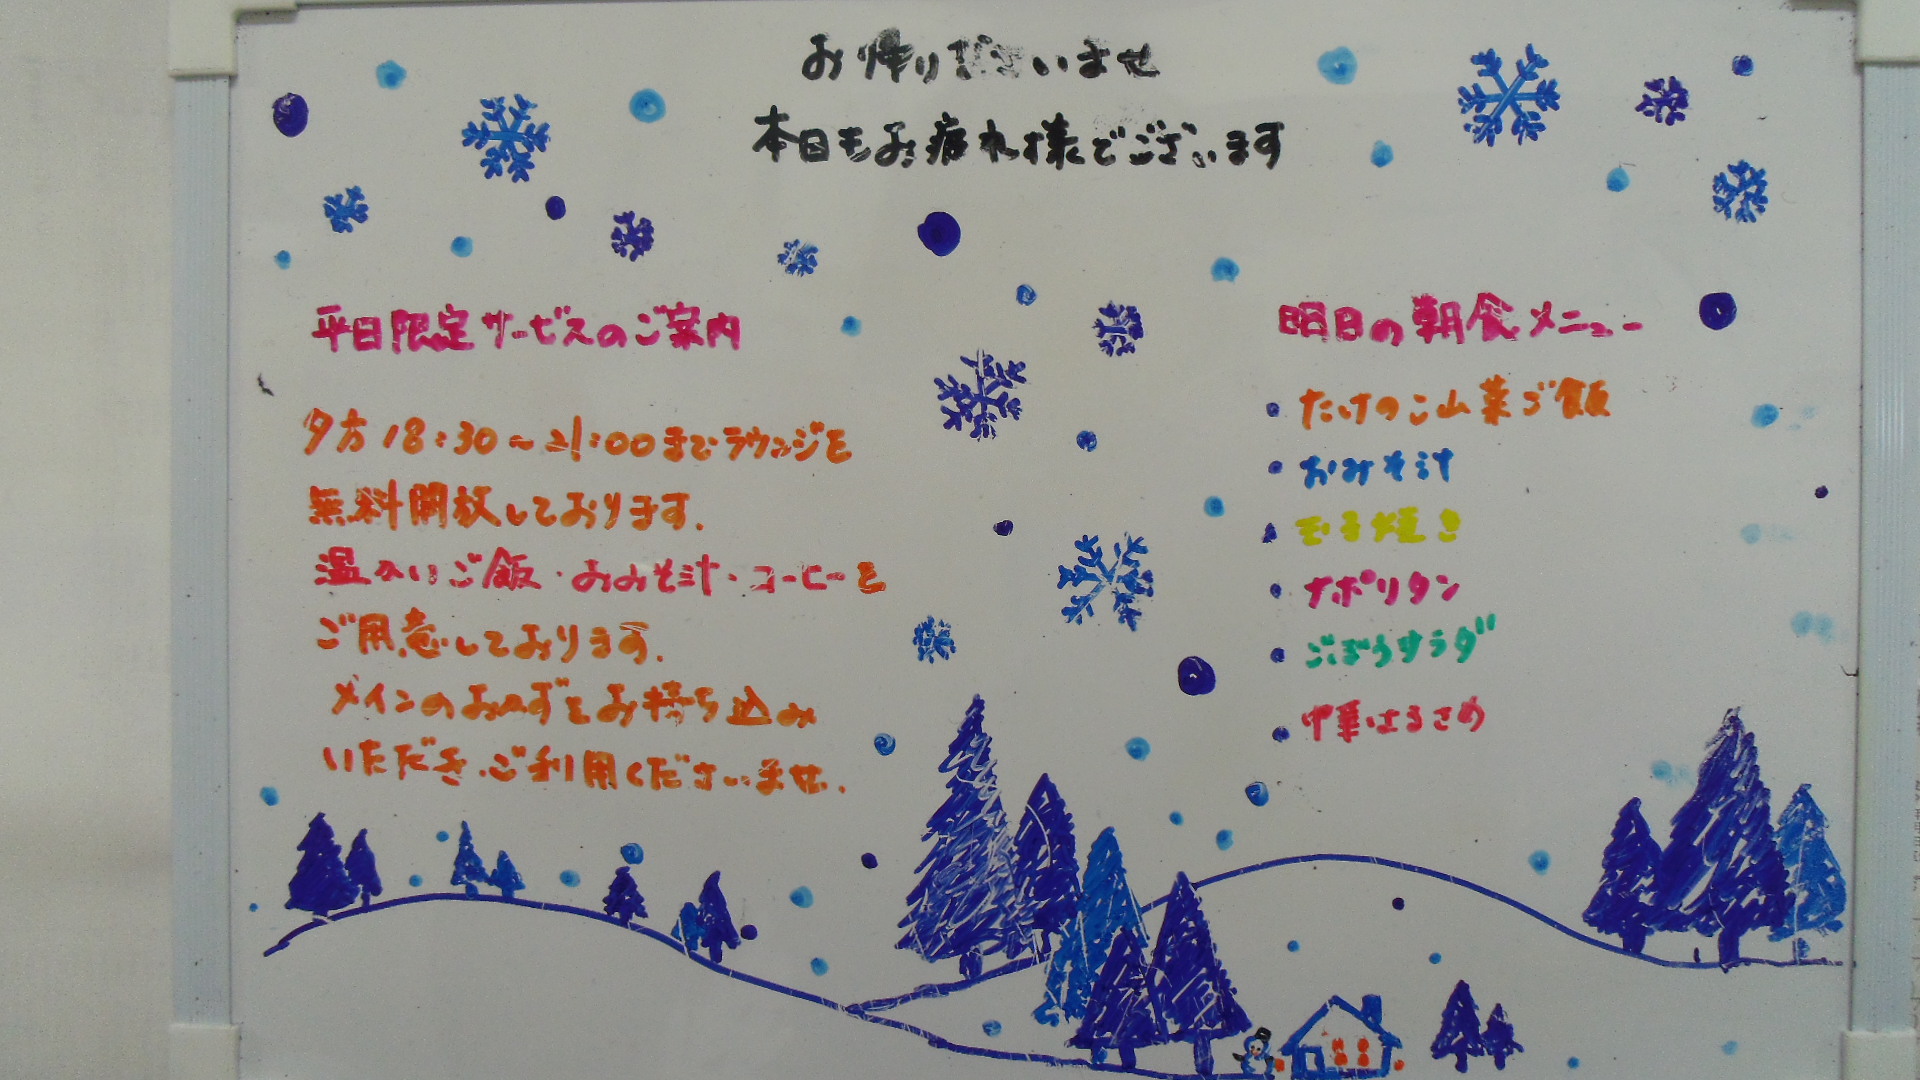 お帰りださいませ
本日もお疲れ様でございます
平日限定サービスのご案内
夕方18:30～21:00までラウンジを
無料開放しております.
温かいご飯・おみそ汁・コーヒーを
ご用意しております.
メインのおかずをお持ち込み
いただき、ご利用くださいませ.
明日の朝食メニュー
・たけのこ山菜ご飯
・おみそ汁
・玉子焼き
・ナポリタン
・ごぼうサラダ
・中華はるさめ